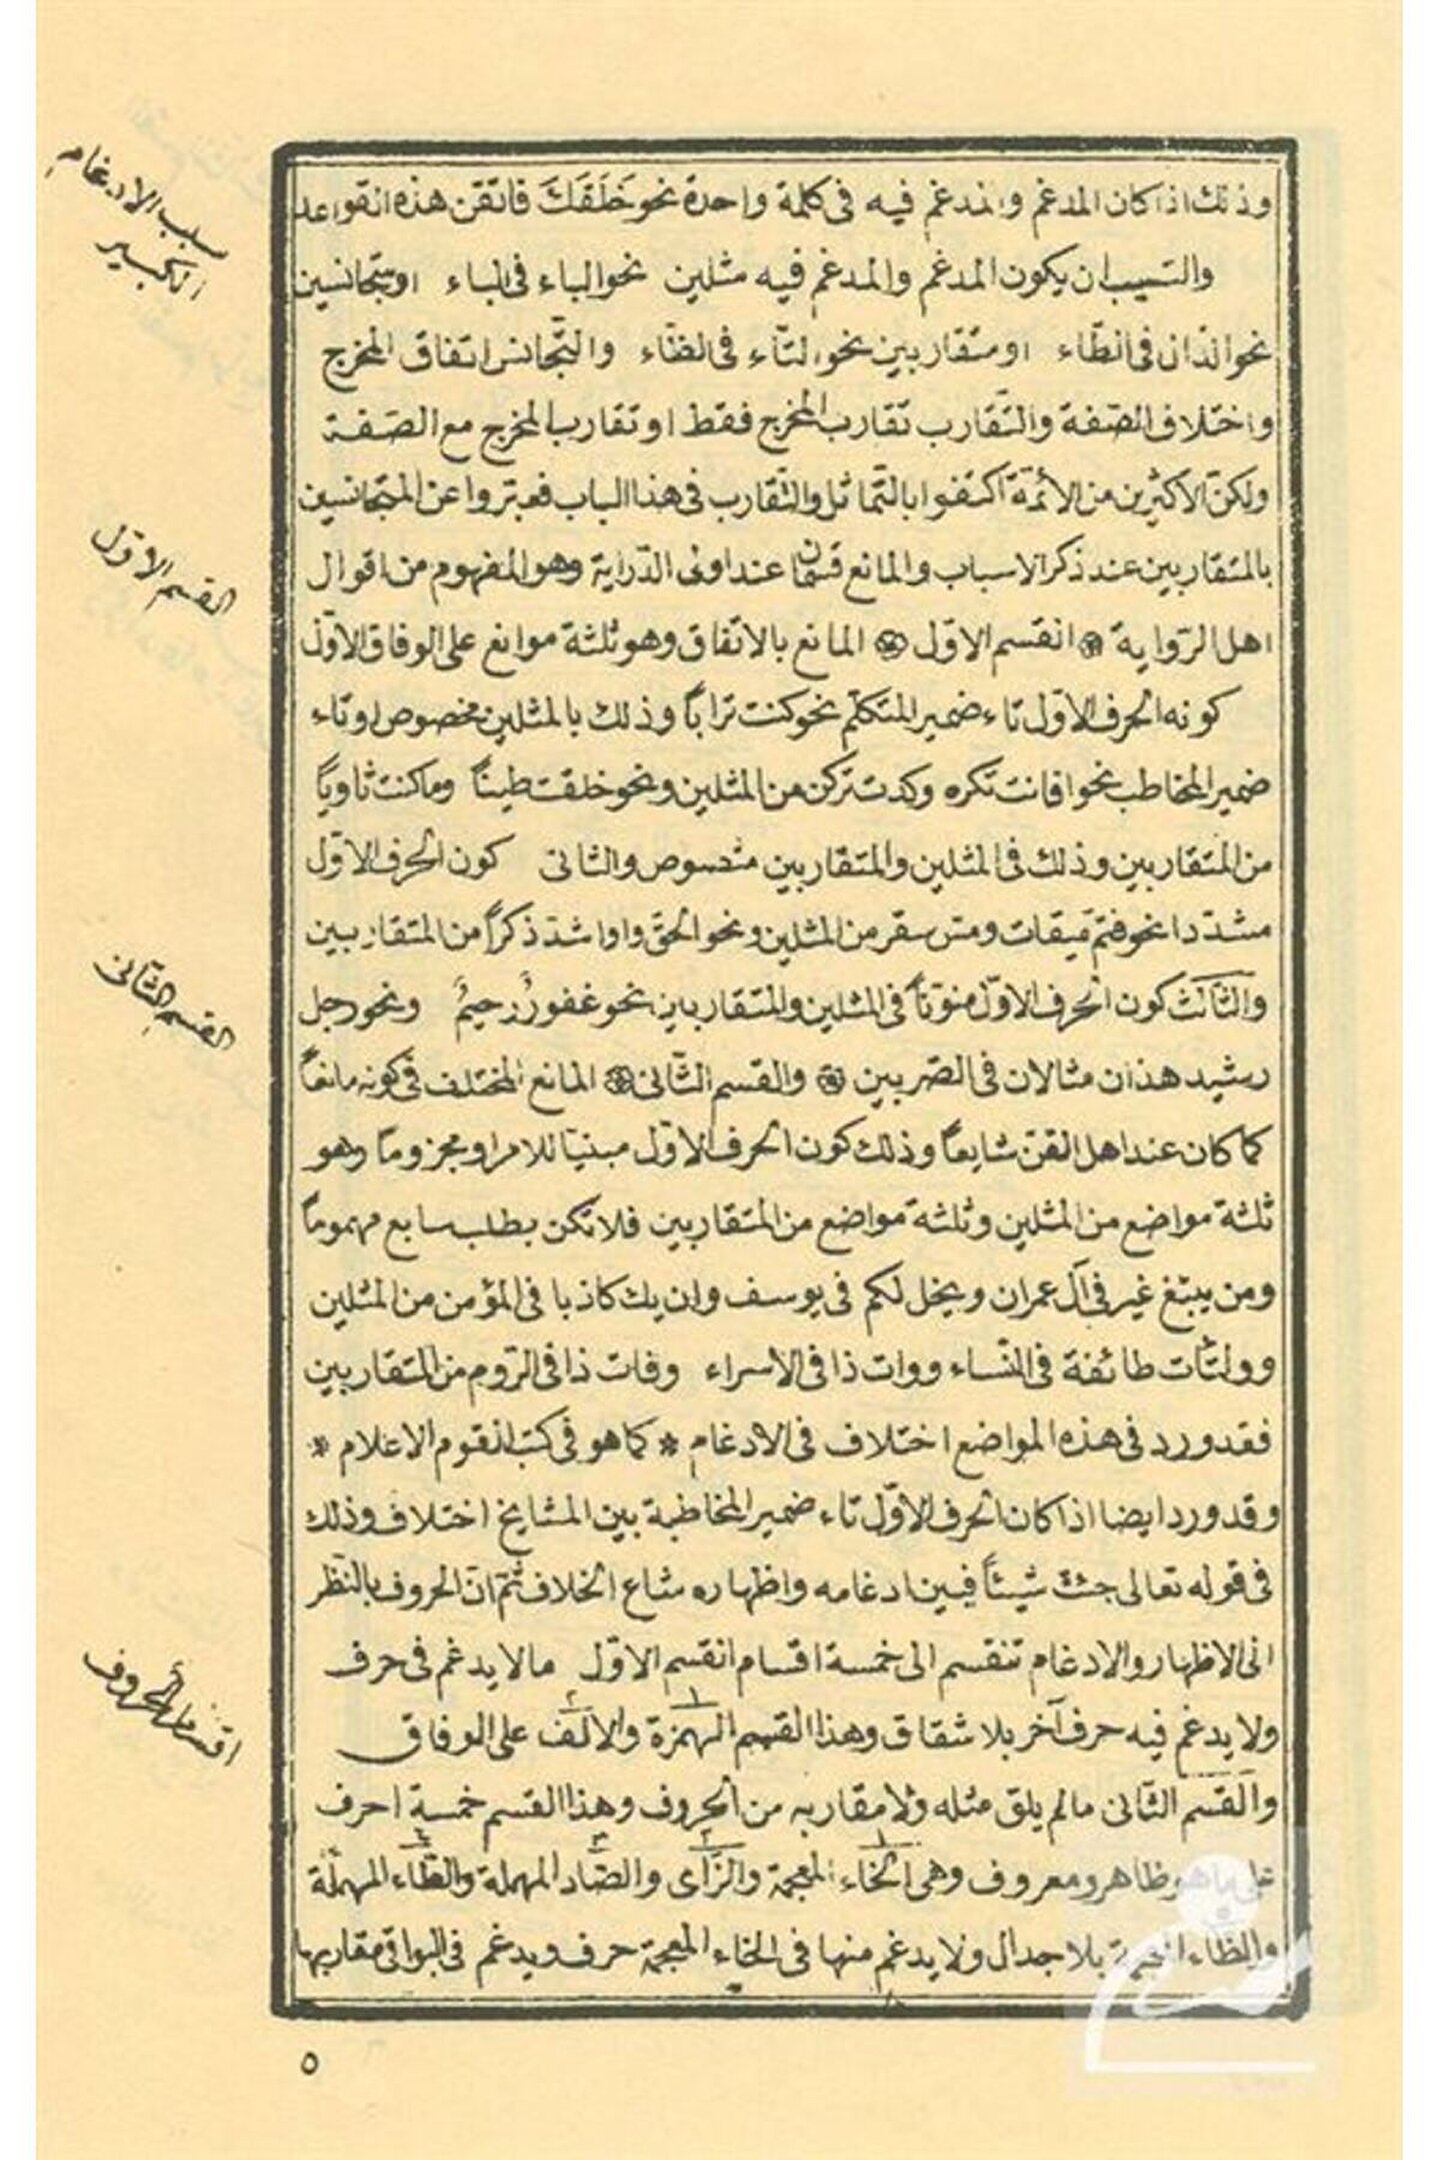 وذلك اذا كان المدغم والمدغم فيه فى كلمة واحدة نحو خَلَقَكَ فاتقن هذه القواعد
سبب الادغام
الكبير
والسبب ان يكون المدغم والمدغم فيه مثلين نحو الباء فى الباء او متجانسين
نحو الدال فى الطّاء او متقاربين نحو التّاء فى الظّاء والتّجانس اتفاق المخرج
واختلاف الصّفة والتّقارب تقارب المخرج فقط او تقارب المخرج مع الصّفة
ولكنّ الاكثرين من الأئمّة اكتفوا بالتّماثل والتّقارب فى هذا الباب فعبّروا عن المتجانسين
القسم الاوّل
بالمتقاربين عند ذكر الاسباب والمانع قسمان عند اولى الدّراية وهو المفهوم من اقوال
اهل الرّواية ۞ القسم الاوّل ۞ المانع بالاتّفاق وهو ثلثة موانع على الوفاق الاوّل
كونه الحرف الاوّل تاء ضمير المتكلّم نحو كنت تراباً وذلك بالمثلين مخصوص او تاء
ضمير المخاطب نحو افانت تكره وكدت تركن من المثلين ونحو خلقت طيناً وما كنت ثاوياً
من المتقاربين وذلك فى المثلين والمتقاربين منصوص والثانى كون الحرف الاوّل
مشدّدا نحو فتمّ ميقات ومسّ سقر من المثلين ونحو الحقّ واو اشدّ ذكراً من المتقاربين
القسم الثّانى
والثّالث كون الحرف الاوّل منوّناً فى المثلين والمتقاربين نحو غفورٌ رحيمٌ ونحو رجل
رشيد هذان مثالان فى الضّربين ۞ والقسم الثّانى ۞ المانع المختلف فى كونه مانعاً
كما كان عند اهل الفنّ شايعاً وذلك كون الحرف الاوّل مبنيّا للامر او مجزوماً وهو
ثلثة مواضع من المثلين وثلثة مواضع من المتقاربين فلا تكن بطلب سابع مهموماً
ومن يبتغ غير فى آل عمران ويخل لكم فى يوسف وان يك كاذبا فى المؤمن من المثلين
وولتأت طائفة فى النّساء ووات ذا فى الاسراء وفات ذا فى الرّوم من المتقاربين
فقد ورد فى هذه المواضع اختلاف فى الادغام * كما هو فى كتب القوم الاعلام *
وقد ورد ايضا اذا كان الحرف الاوّل تاء ضمير المخاطبة بين المشايخ اختلاف وذلك
فى قوله تعالى جئت شيئاً فبين ادغامه واظهاره شاع الخلاف ثمّ انّ الحروف بالنّظر
اقسام الحروف
الى الاظهار والادغام تنقسم الى خمسة اقسام القسم الاوّل ما لا يدغم فى حرف
ولا يدغم فيه حرف آخر بلا شقاق وهذا القسم الهمزة والالف على الوفاق
والقسم الثّانى ما لم يلق مثله ولا مقاربه من الحروف وهذا القسم خمسة احرف
على ما هو ظاهر ومعروف وهى الخاء المعجمة والزّاى والصّاد المهملة والطّاء المهملة
والظّاء المعجمة بلا جدال ولا يدغم منها فى الخاء المعجمة حرف ويدغم فى البواقى مقاربها
٥